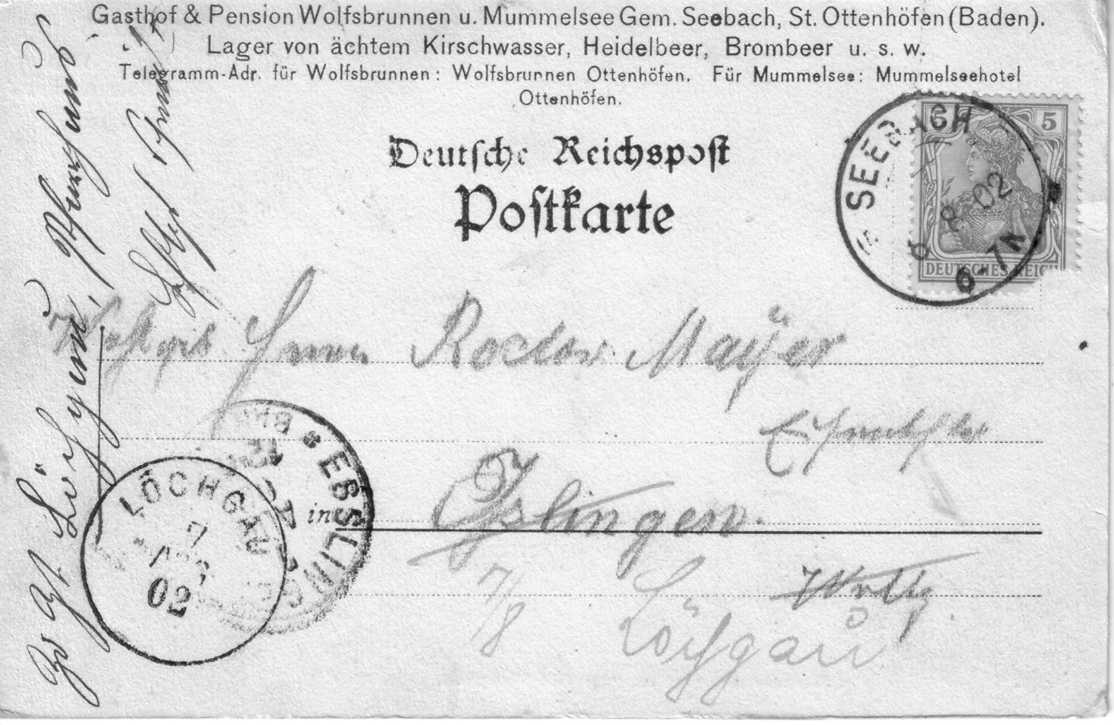 Gasthof & Pension Wolfsbrunnen u. Mummelsee Gem. Seebach, St. Ottenhöfen (Baden).
Lager von ächtem Kirschwasser, Heidelbeer, Brombeer u. s. w.
Telegramm-Adr. für Wolfsbrunnen: Wolfsbrunnen Ottenhöfen. Für Mummelsee: Mummelseehotel
Ottenhöfen.
Deutsche Reichspost
Postkarte
5 5
DEUTSCHES REICH
SEEBACH
8 02
6-7N
Herrn Rector Mayer
ESSLING
in Eslingen.
LÖCHGAU
7
AUG
02
7/8
Löchgau
Zr Zt Löchgau,